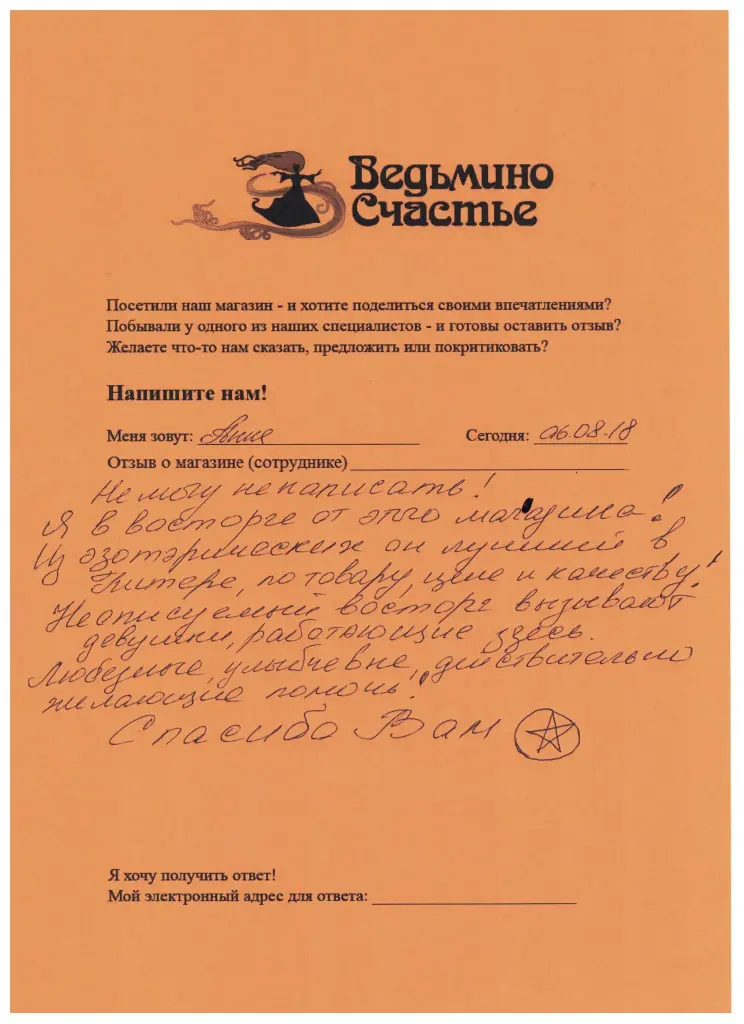 Ведьмино
Счастье
Посетили наш магазин - и хотите поделиться своими впечатлениями?
Побывали у одного из наших специалистов - и готовы оставить отзыв?
Желаете что-то нам сказать, предложить или покритиковать?
Напишите нам!
Меня зовут: Анна Сегодня: 06.08.18
Отзыв о магазине (сотруднике)
Не могу не написать!
Я в восторге от этого магазина!
Из эзотэрических он лучший в
Питере, по товару, цене и качеству!
Неописуемый восторг вызывают
девушки, работающие здесь.
Любезные, улыбчевые, действительно
желающие помочь!
Спасибо Вам
Я хочу получить ответ!
Мой электронный адрес для ответа: